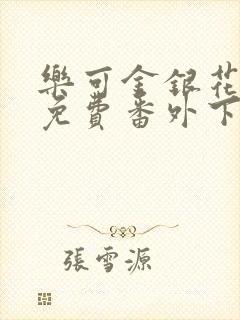 樂可金銀花
免費番外下
張雪源